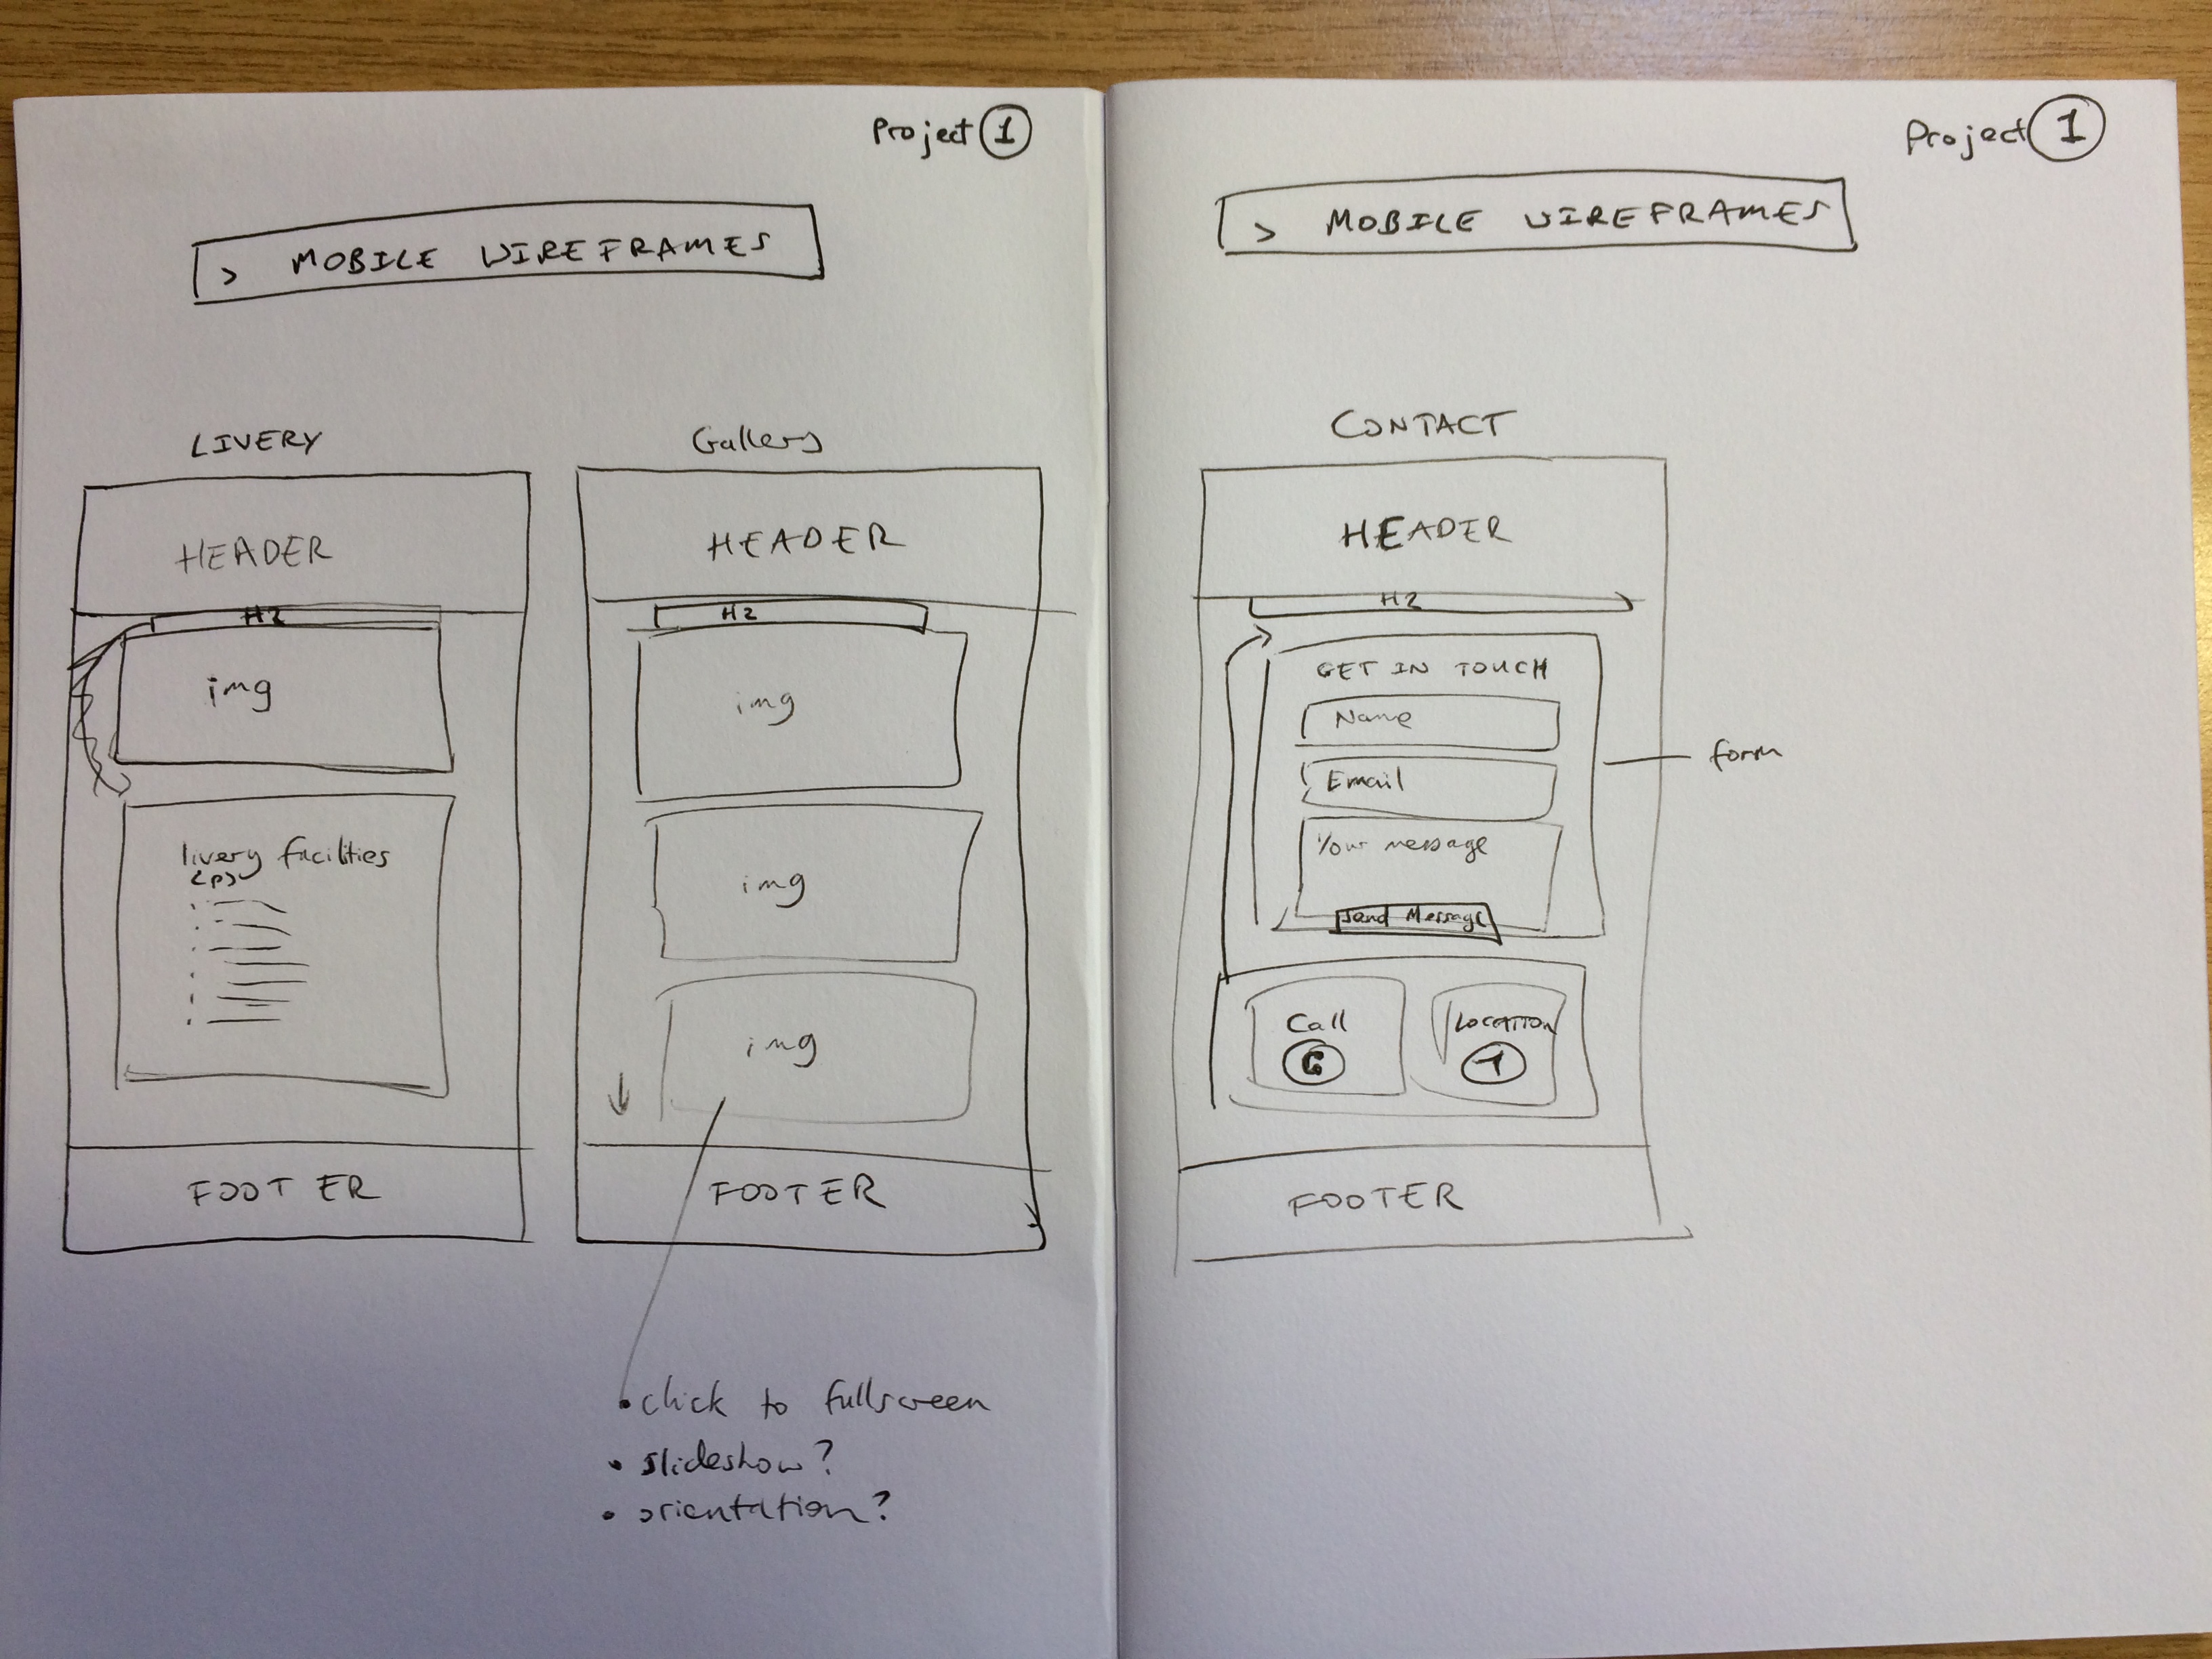 Project 1
> MOBILE WIREFRAMES
LIVERY
HEADER
H2
img
livery facilities
FOOTER
Gallery
HEADER
H2
img
img
img
FOOTER
• click to fullscreen
• slideshow?
• orientation?
Project 1
> MOBILE WIREFRAMES
CONTACT
HEADER
H2
GET IN TOUCH
Name
Email
Your message
Send Message
form
Call
Location
FOOTER